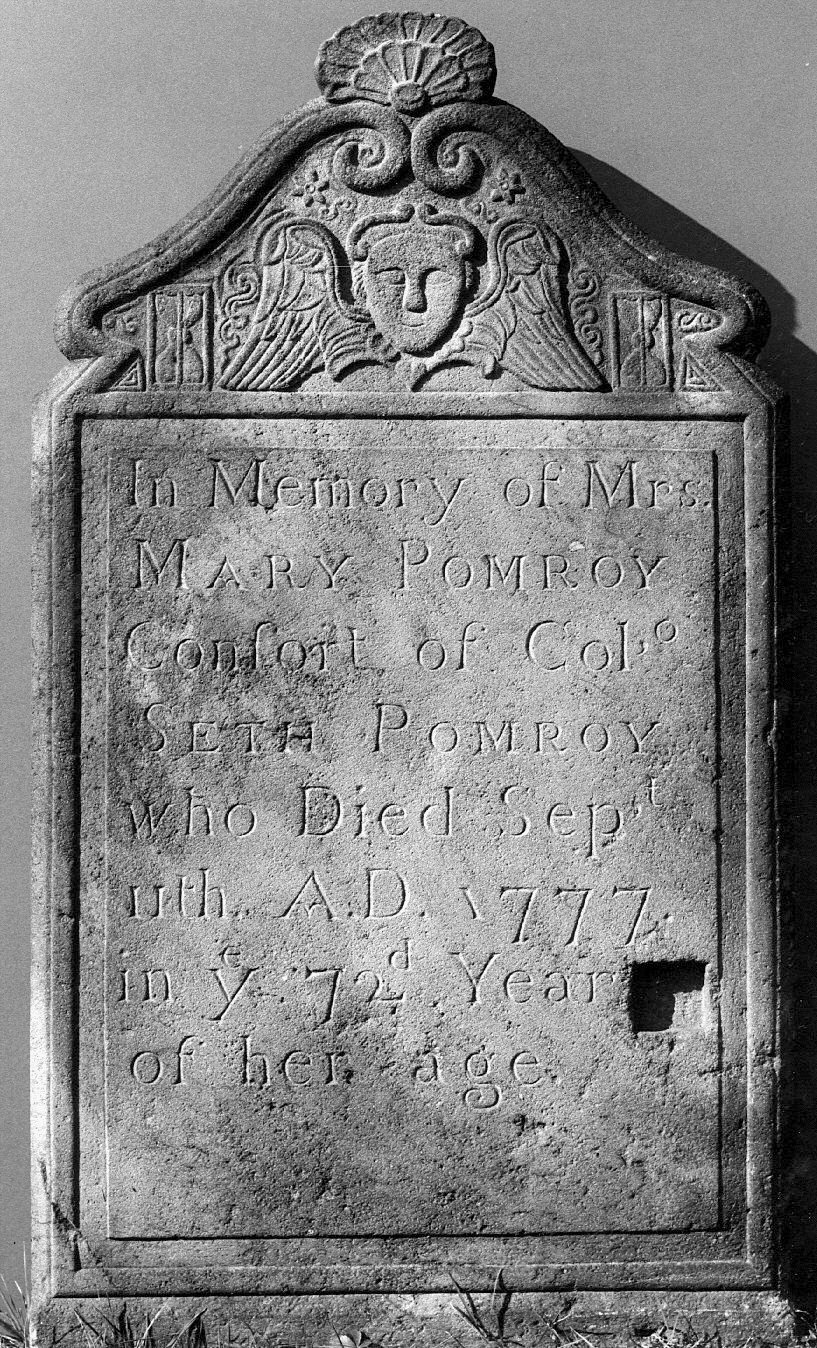 In Memory of Mrs.
MARY POMROY
Conſort of Col.º
SETH POMROY
who Died Sepᵗ
11th. A.D. 1777.
in yᵉ 72ᵈ Year
of her age.